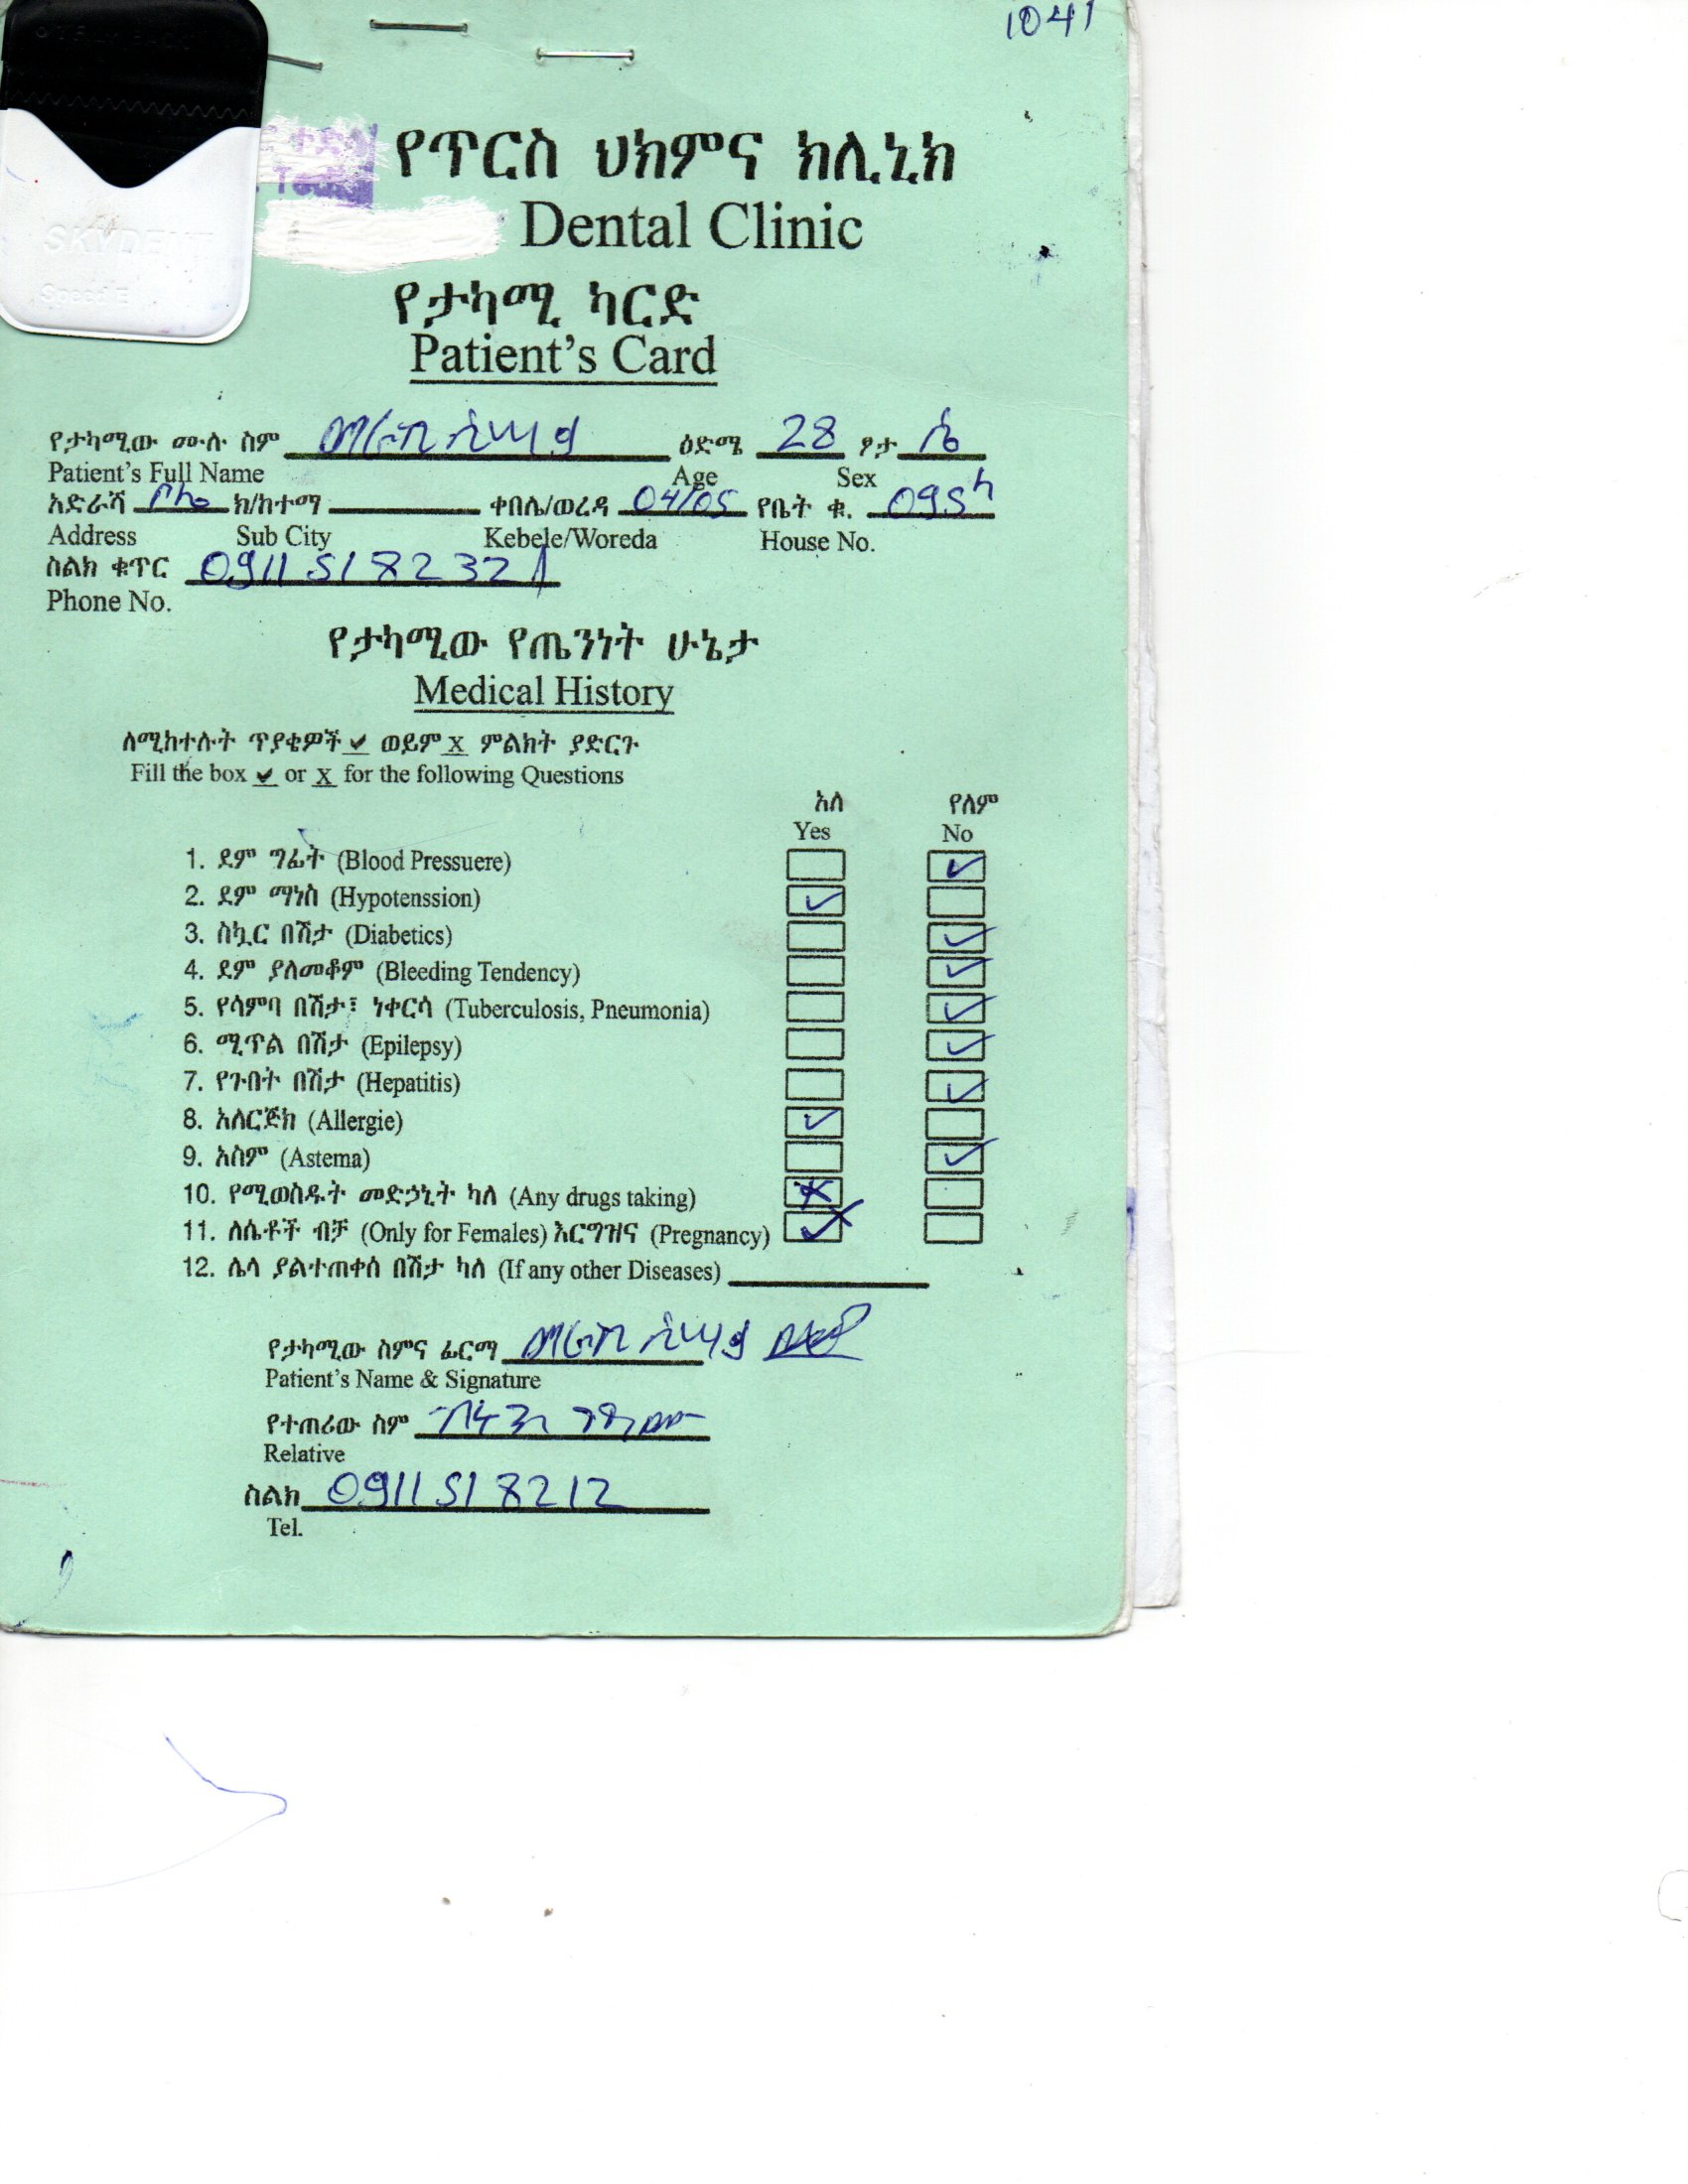 1041
SKYDENT
Speed E
የጥርስ ህክምና ክሊኒክ
Dental Clinic
የታካሚ ካርድ
Patient's Card
የታካሚው ሙሉ ስም ዕድሜ 28 ፆታ ሴ
Patient's Full Name Age Sex
አድራሻ ክ/ከተማ ቀበሌ/ወረዳ 04/05 የቤት ቁ.
Address Sub City Kebele/Woreda House No.
ስልክ ቁጥር
Phone No.
የታካሚው የጤንነት ሁኔታ
Medical History
ለሚከተሉት ጥያቄዎች ✓ ወይም X ምልክት ያድርጉ
Fill the box ✓ or X for the following Questions
አለ የለም
Yes No
1. ደም ግፊት (Blood Pressuere) ✓
2. ደም ማነስ (Hypotenssion) ✓
3. ስኳር በሽታ (Diabetics) ✓
4. ደም ያለመቆም (Bleeding Tendency) ✓
5. የሳምባ በሽታ፣ ነቀርሳ (Tuberculosis, Pneumonia) ✓
6. ሚጥል በሽታ (Epilepsy) ✓
7. የጉበት በሽታ (Hepatitis) ✓
8. አለርጅክ (Allergie) ✓
9. አስም (Astema) ✓
10. የሚወስዱት መድኃኒት ካለ (Any drugs taking) X
11. ለሴቶች ብቻ (Only for Females) እርግዝና (Pregnancy) ✓
12. ሌላ ያልተጠቀሰ በሽታ ካለ (If any other Diseases)
የታካሚው ስምና ፊርማ
Patient's Name & Signature
የተጠሪው ስም
Relative
ስልክ 0911518212
Tel.